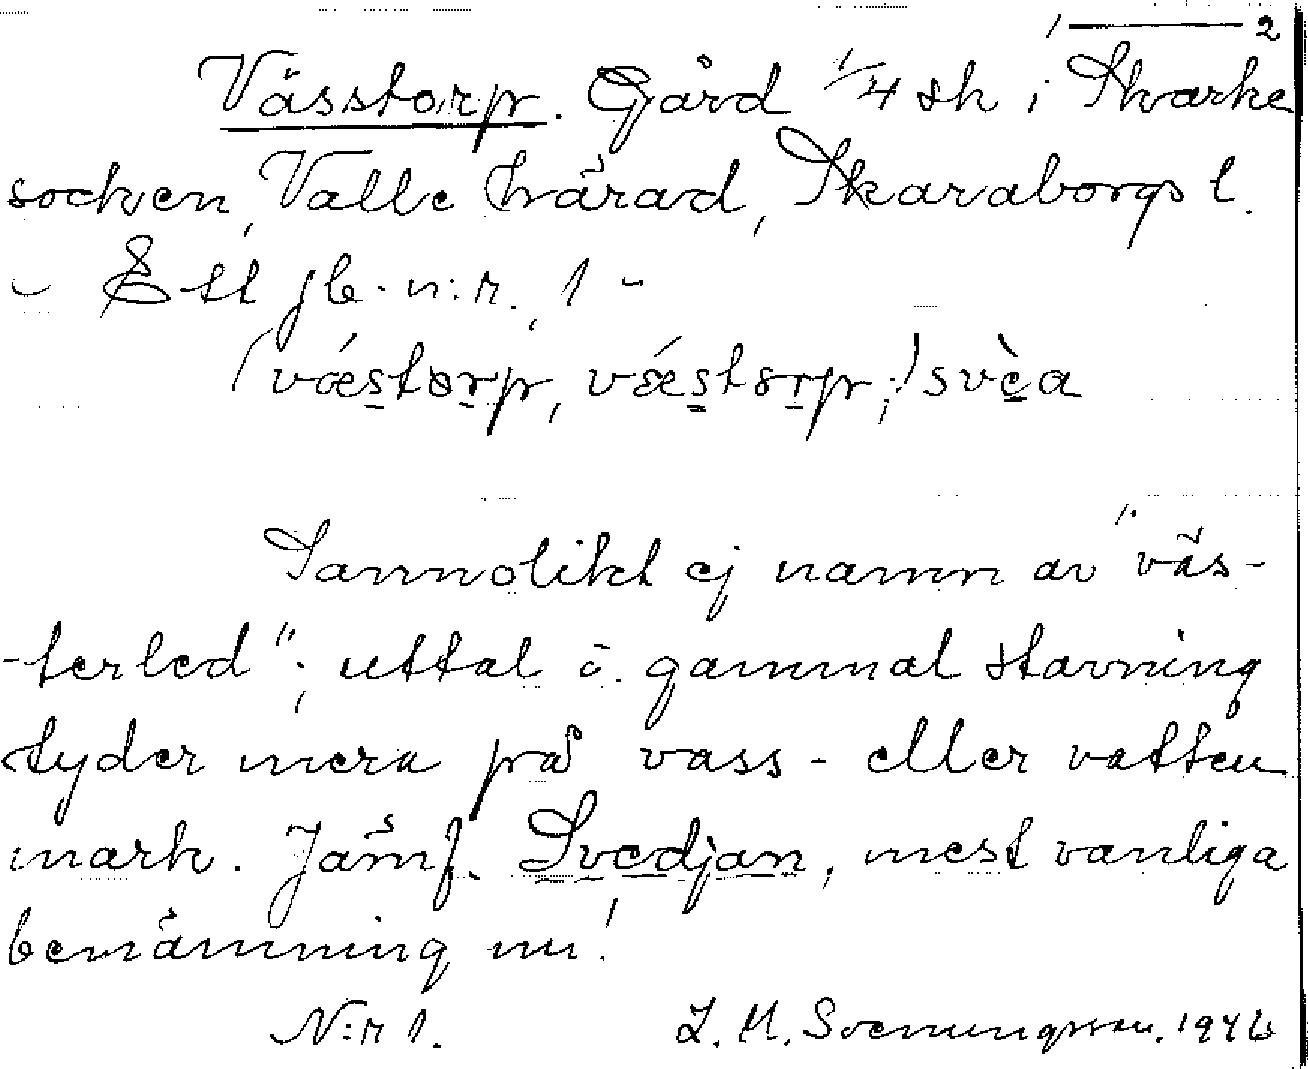 1 — 2
Vässtorp. Gård 1/4 sk i Skarke
socken, Valle härad, Skaraborgs l.
- Ett jb. n:r. 1 -
(væstorp, væstorp;) svèa
Sannolikt ej namn av "väs-
-terled"; uttal o. gammal stavning
tyder mera på vass- eller vatten
mark. Jämf. Svedjan, mest vanliga
benämning nu!
N:r 1. L. M. Svenungsson. 1946